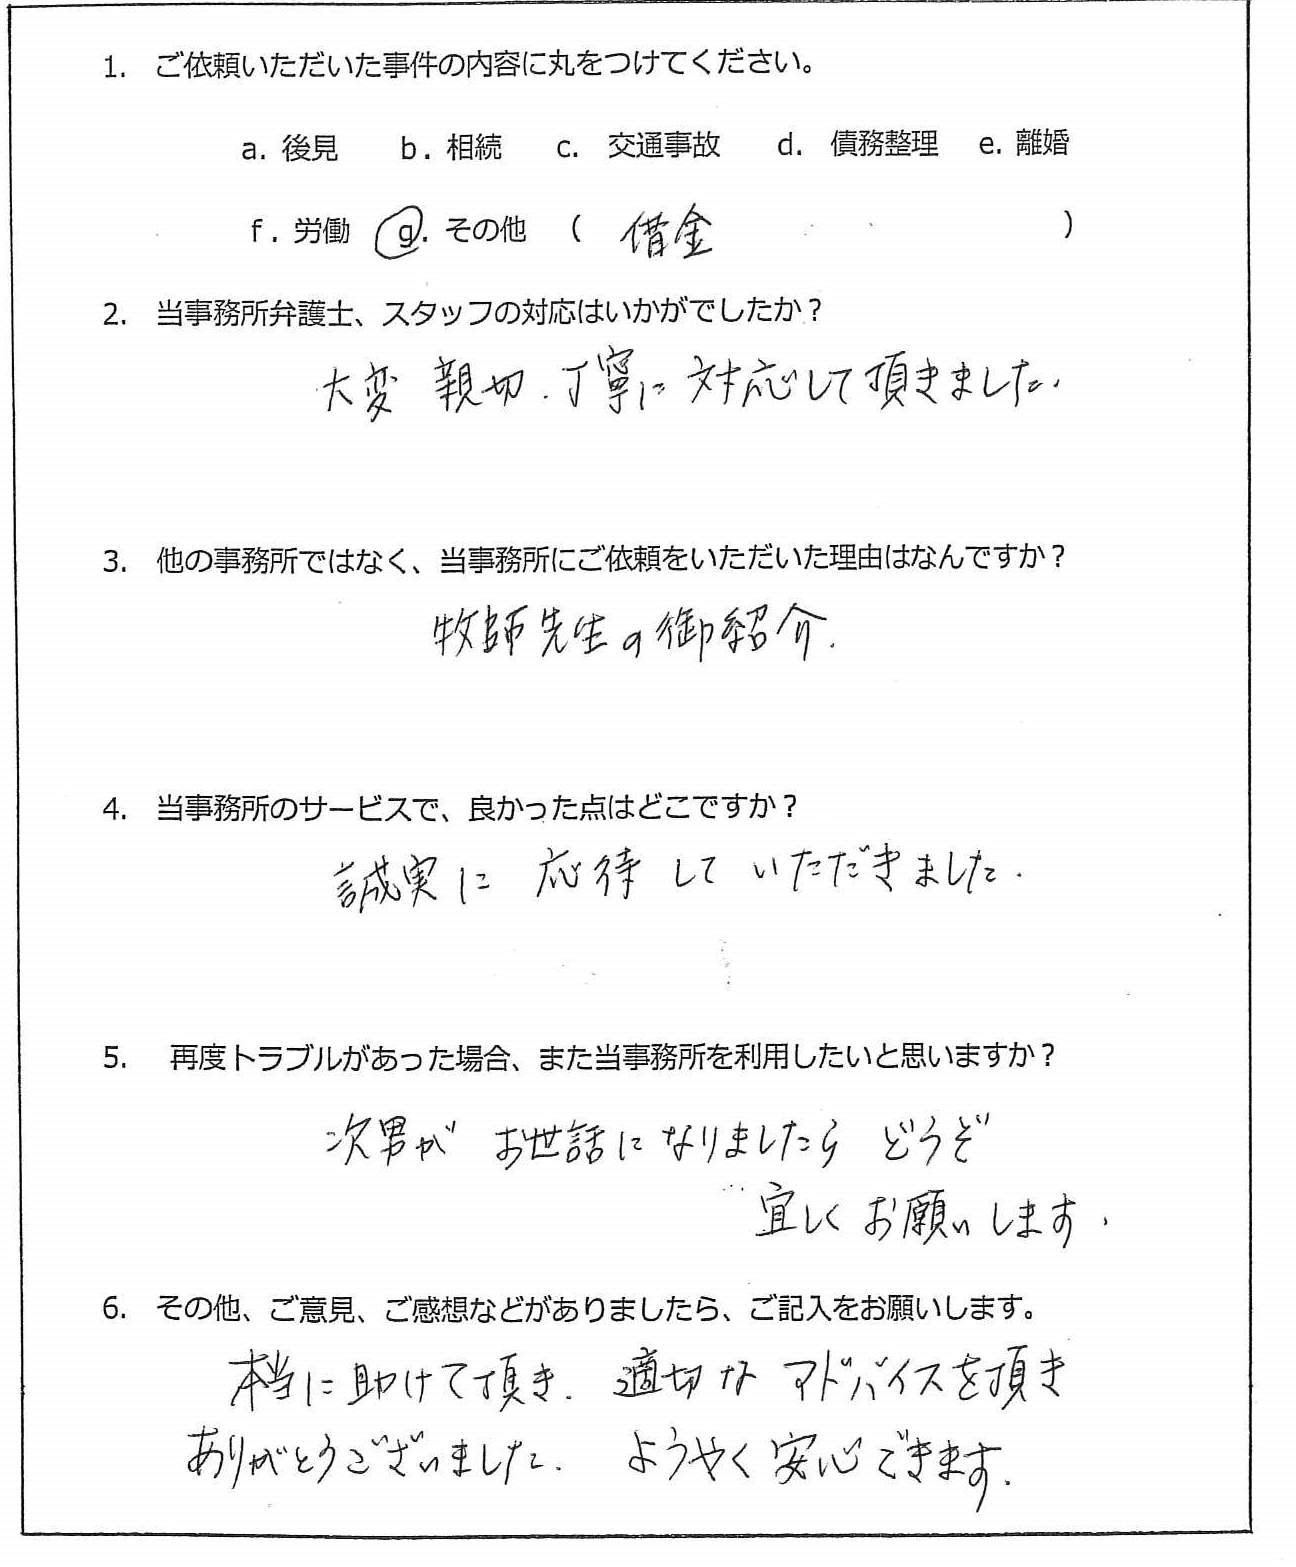 1. ご依頼いただいた事件の内容に丸をつけてください。
a. 後見 b. 相続 c. 交通事故 d. 債務整理 e. 離婚
f. 労働 g. その他 ( 借金 )
2. 当事務所弁護士、スタッフの対応はいかがでしたか？
大変 親切.丁寧に 対応して頂きました.
3. 他の事務所ではなく、当事務所にご依頼をいただいた理由はなんですか？
牧師先生の御紹介.
4. 当事務所のサービスで、良かった点はどこですか？
誠実に 応待 して いただきました.
5. 再度トラブルがあった場合、また当事務所を利用したいと思いますか？
次男が お世話に なりましたら どうぞ
宜しく お願いします.
6. その他、ご意見、ご感想などがありましたら、ご記入をお願いします。
本当に助けて頂き. 適切な アドバイスを頂き
ありがとうございました. ようやく 安心できます.